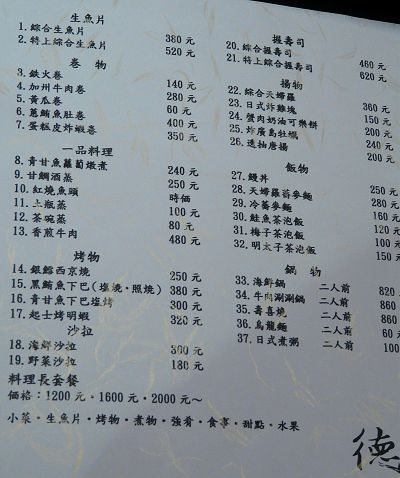 生魚片
1. 綜合生魚片 380 元
2. 特上綜合生魚片 520 元
卷物
3. 鐵火卷 140 元
4. 加州牛肉卷 280 元
5. 黃瓜卷 60 元
6. 蔥鮪魚肚卷 400 元
7. 蛋糕皮炸蝦卷 350 元
一品料理
8. 青甘魚蘿蔔燉煮 240 元
9. 甘鯛酒蒸 250 元
10. 紅燒魚頭 時價
11. 土瓶蒸 100 元
12. 茶碗蒸 80 元
13. 香煎牛肉 480 元
烤物
14. 銀鱈西京燒 250 元
15. 黑鮪魚下巴(塩燒・照燒) 380 元
16. 青甘魚下巴塩烤 300 元
17. 起士烤明蝦 320 元
沙拉
18. 海鮮沙拉 300 元
19. 野菜沙拉 180 元
料理長套餐
價格：1200 元・1600 元・2000 元～
小菜・生魚片・烤物・煮物・強肴・食事・甜點・水果
握壽司
20. 綜合握壽司 460 元
21. 特上綜合握壽司 620 元
揚物
22. 綜合天婦羅 360 元
23. 日式炸雞塊 150 元
24. 蟹肉奶油可樂餅 200 元
25. 炸廣島牡蠣 240 元
26. 透抽唐揚 200 元
飯物
27. 鰻丼 250 元
28. 天婦羅蕎麥麵 280 元
29. 冷蕎麥麵 160 元
30. 鮭魚茶泡飯 120
31. 梅子茶泡飯 100
32. 明太子茶泡飯 150
鍋物
33. 海鮮鍋 二人前 820
34. 牛肉涮涮鍋 二人前 860
35. 壽喜燒 二人前 860
36. 烏龍麵 二人前 60
37. 日式煮粥 二人前 100
德